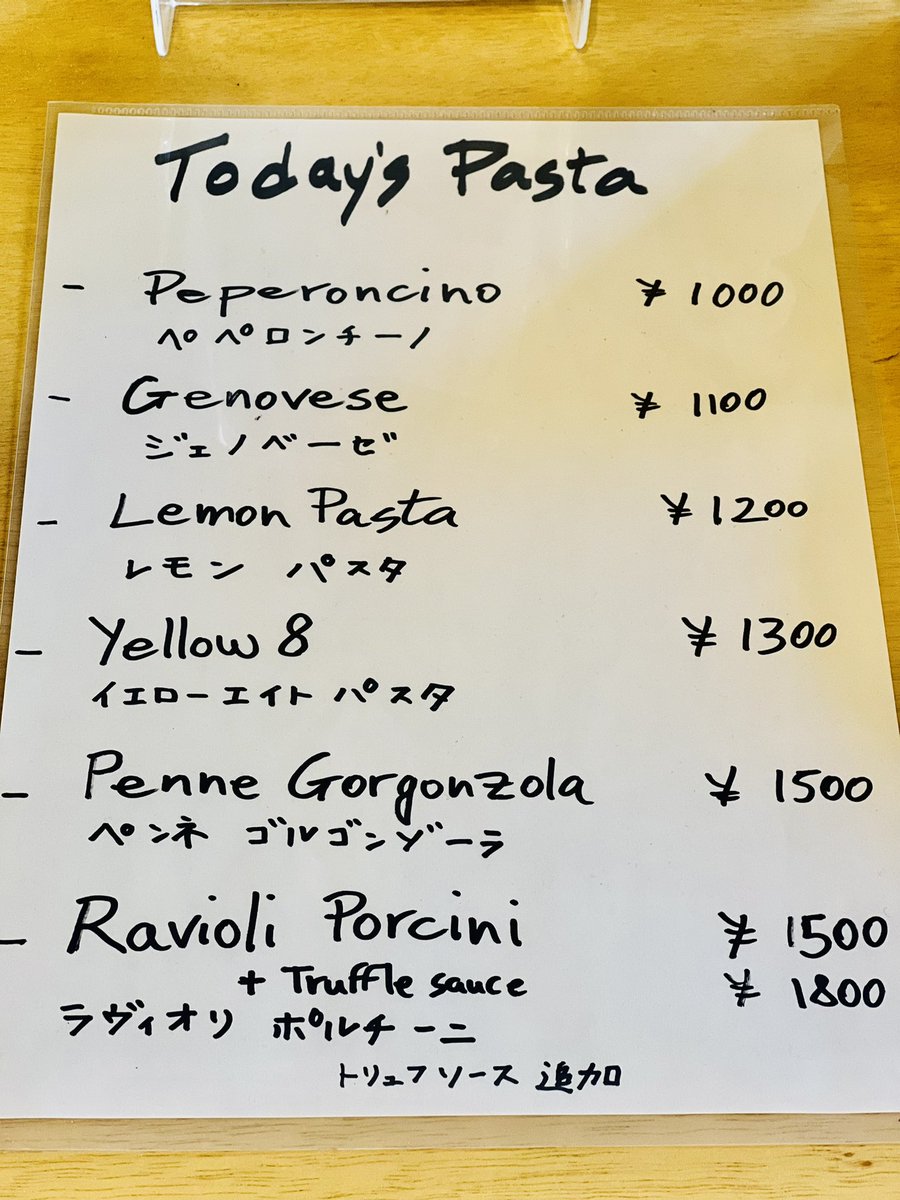 Today's Pasta
- Peperoncino ¥ 1000
ペペロンチーノ
- Genovese ¥ 1100
ジェノベーゼ
- Lemon Pasta ¥ 1200
レモン パスタ
- Yellow 8 ¥ 1300
イエローエイト パスタ
- Penne Gorgonzola ¥ 1500
ペンネ ゴルゴンゾーラ
- Ravioli Porcini ¥ 1500
+ Truffle sauce ¥ 1800
ラヴィオリ ポルチーニ
トリュフソース 追加